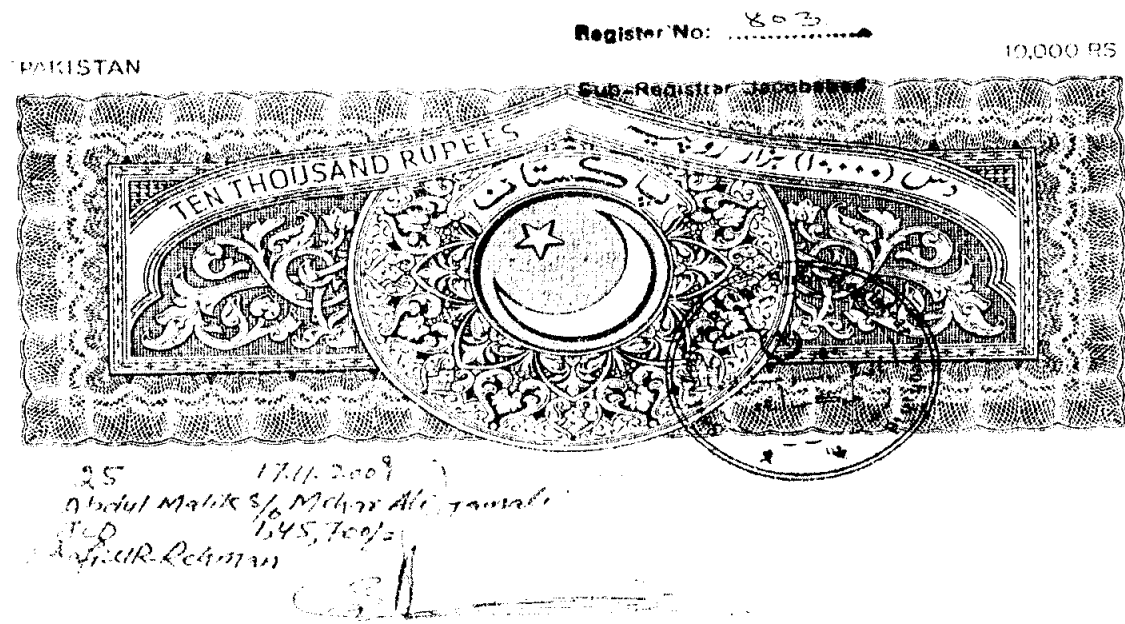 Register No: 803
PAKISTAN
10,000 RS
Sub-Registrar Jacobabad
TEN THOUSAND RUPEES
دس (۱۰,۰۰۰) ہزار روپیہ
پاکستان
25 17.11.2009
Abdul Malik S/o Mehar Ali Jamali
1,45,700/=
UR-Rehman